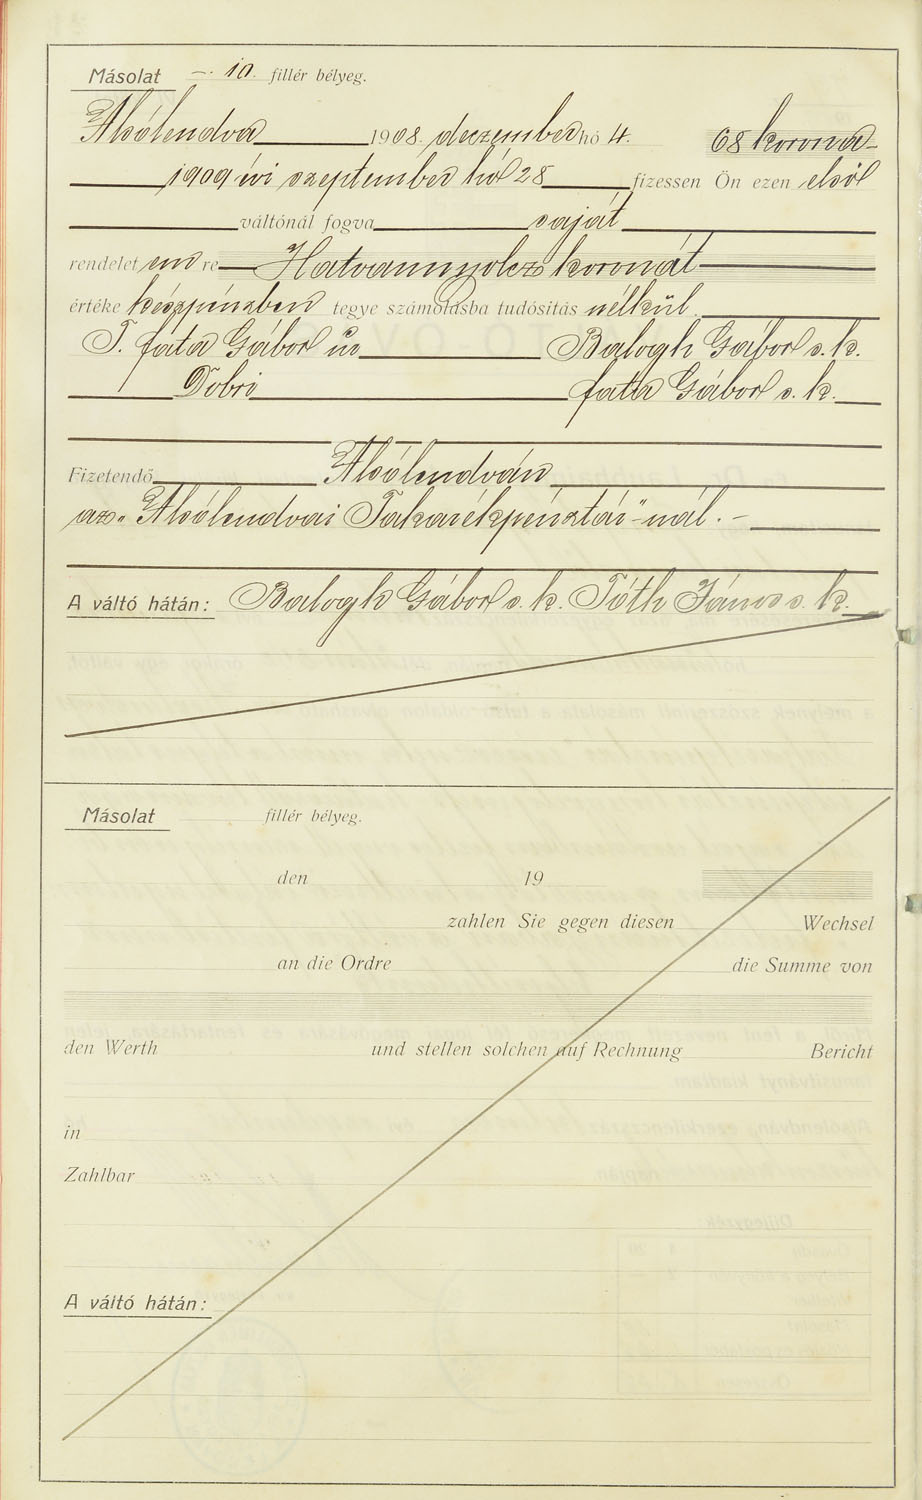 Másolat –. 10. fillér bélyeg.
Alsólendva 1908. deczember hó 4. 68 korona
1909 évi szeptember hó 28 fizessen Ön ezen első
váltónál fogva saját
rendeletem re Hatvannyolcz koronát
értéke készpénzben tegye számolásba tudósítás nélkül.
T. fata Gábor úr Balogh Gábor s. k.
Dobri fata Gábor s. k.
Fizetendő Alsólendván
az „Alsólendvai Takarékpénztár"-nál. –
A váltó hátán: Balogh Gábor s. k. Tóth János s. k.
Másolat fillér bélyeg.
den 19
zahlen Sie gegen diesen Wechsel
an die Ordre die Summe von
den Werth und stellen solchen auf Rechnung Bericht
in
Zahlbar
A váltó hátán: